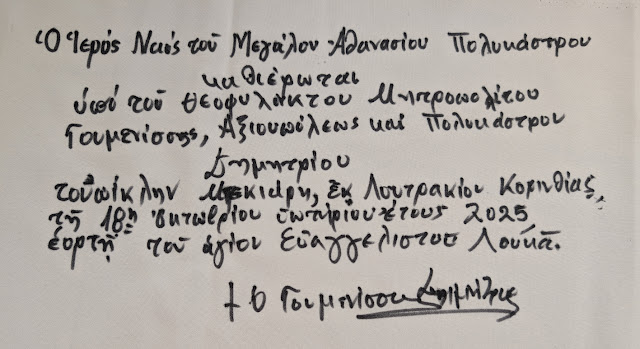 Ὁ Ἱερός Ναός τοῦ Μεγάλου Ἀθανασίου Πολυκάστρου
καθιέρωται
ὑπό τοῦ Θεοφυλάκτου Μητροπολίτου
Γουμενίσσης, Ἀξιουπόλεως καί Πολυκάστρου
Δημητρίου
τοὐπίκλην Μπεκιάρη, ἐκ Λουτρακίου Κορινθίας,
τῇ 18ῃ Ὀκτωβρίου σωτηρίου ἔτους 2025
ἑορτῇ τοῦ ἁγίου Εὐαγγελιστοῦ Λουκᾶ.
† Ὁ Γουμενίσσης Δημήτριος